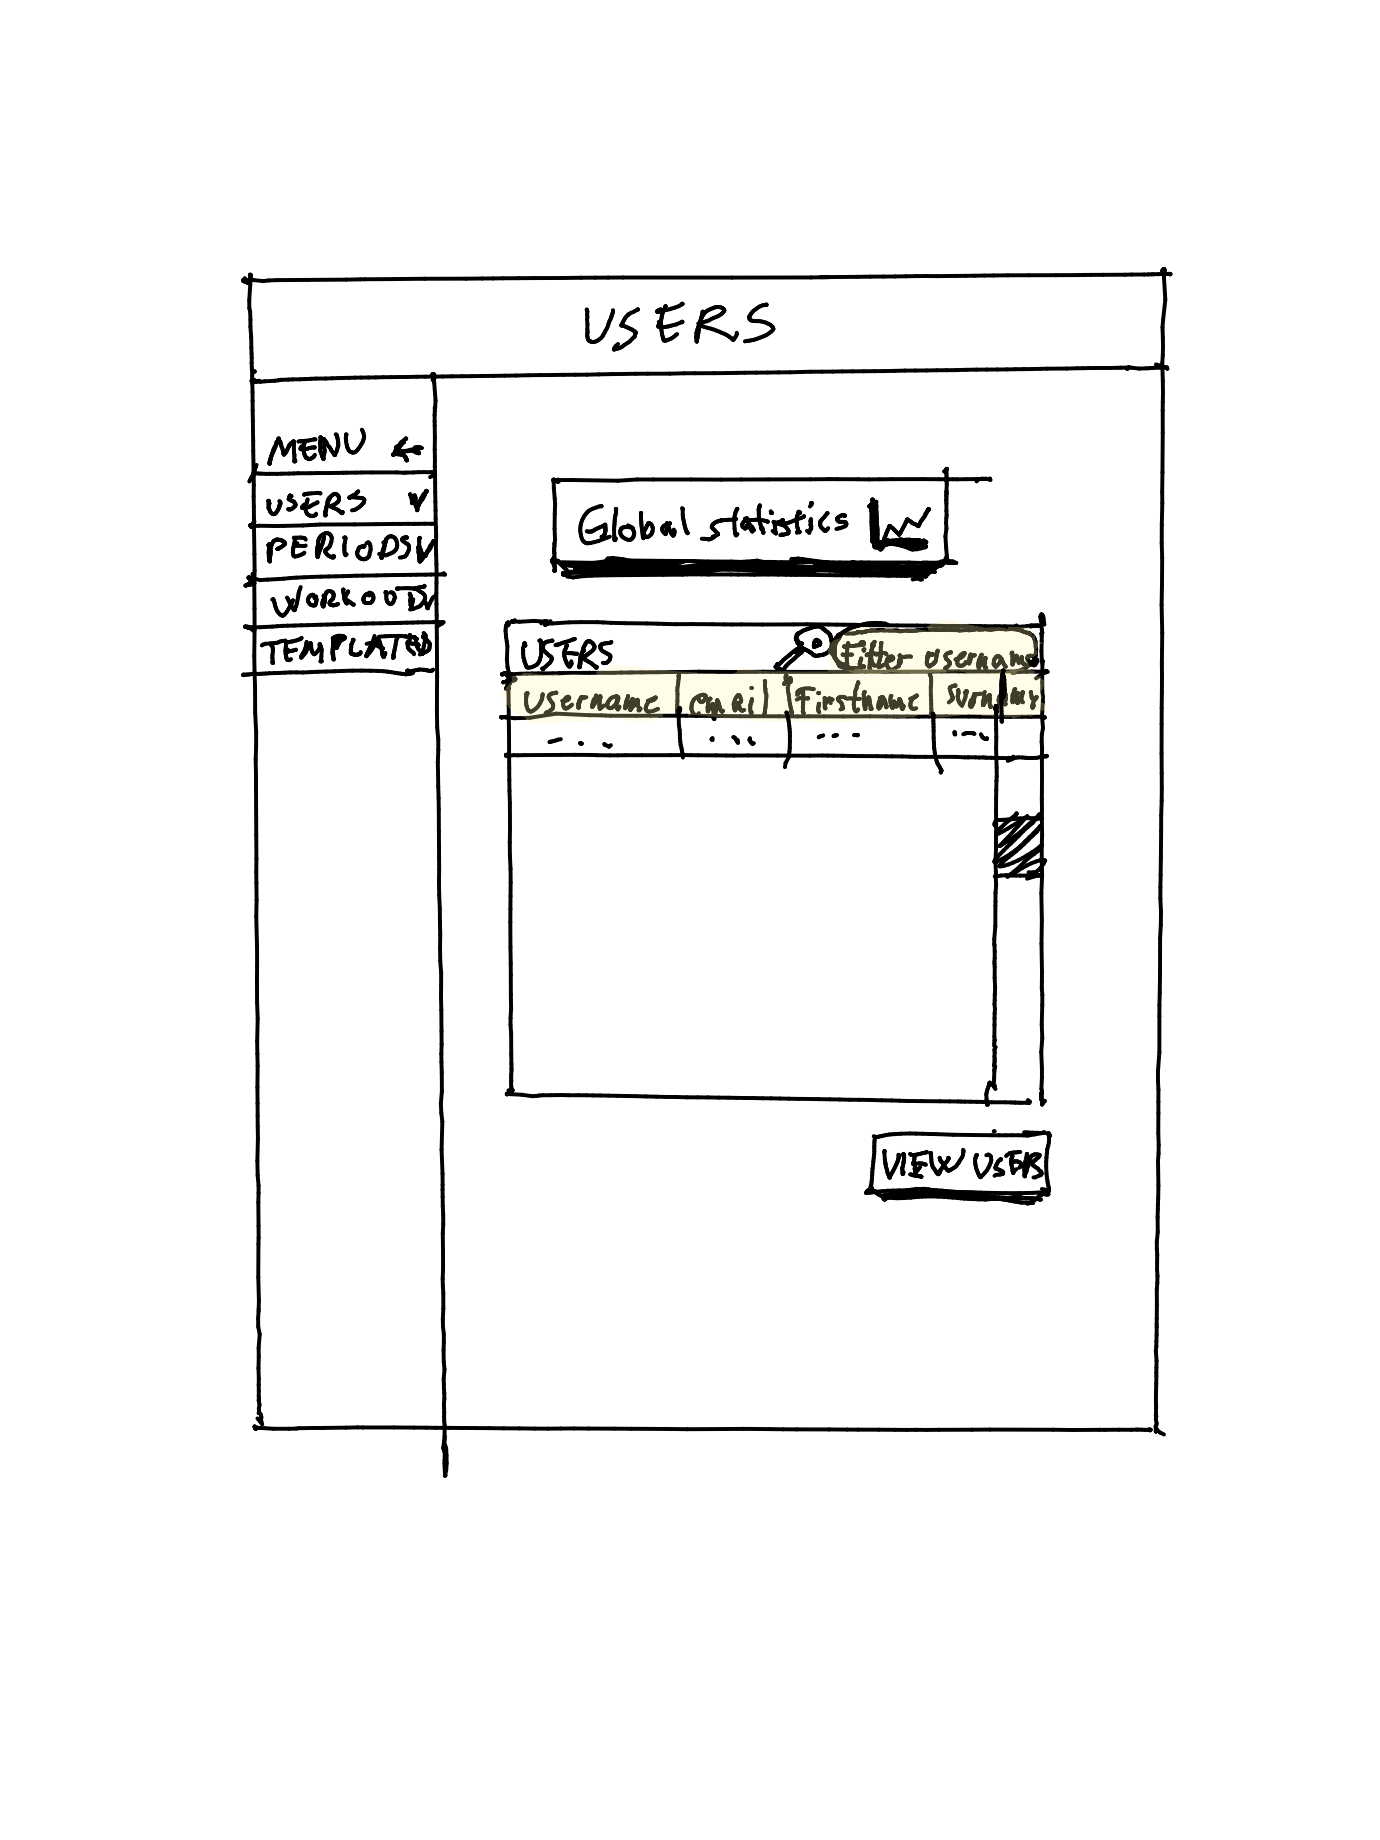 USERS
MENU ←
USERS v
PERIODS v
TEMPLATE
Global statistics
USERS Filter username
Username email Firstname
... ... ... ...
VIEW USERS